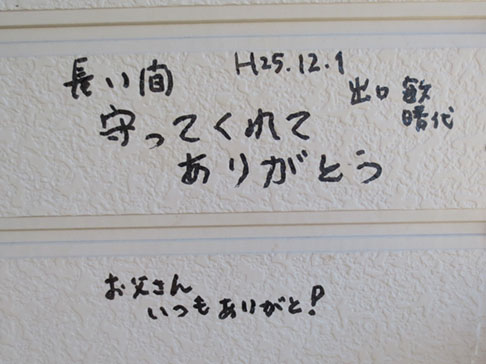 H25.12.1
長い間
出口 敏
晴代
守ってくれて
ありがとう
お父さん
いつもありがと!